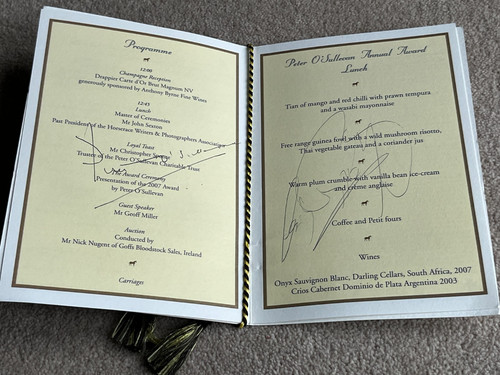 Programme
12:00
Champagne Reception
Drappier Carte d'Or Brut Magnum NV
generously sponsored by Anthony Byrne Fine Wines
12:45
Lunch
Master of Ceremonies
Mr John Sexton
Past President of the Horserace Writers & Photographers Association
Loyal Toast
Mr Christopher
Trustee of the Peter O'Sullevan Charitable Trust
Award Ceremony
Presentation of the 2007 Award
by Peter O'Sullevan
Guest Speaker
Mr Geoff Miller
Auction
Conducted by
Mr Nick Nugent of Goffs Bloodstock Sales, Ireland
Carriages
Peter O'Sullevan Annual Award
Lunch
Tian of mango and red chilli with prawn tempura
and a wasabi mayonnaise
Free range guinea fowl with a wild mushroom risotto,
Thai vegetable gateau and a coriander jus
Warm plum crumble with vanilla bean ice-cream
and crème anglaise
Coffee and Petit fours
Wines
Onyx Sauvignon Blanc, Darling Cellars, South Africa, 2007
Crios Cabernet Dominio de Plata Argentina 2003